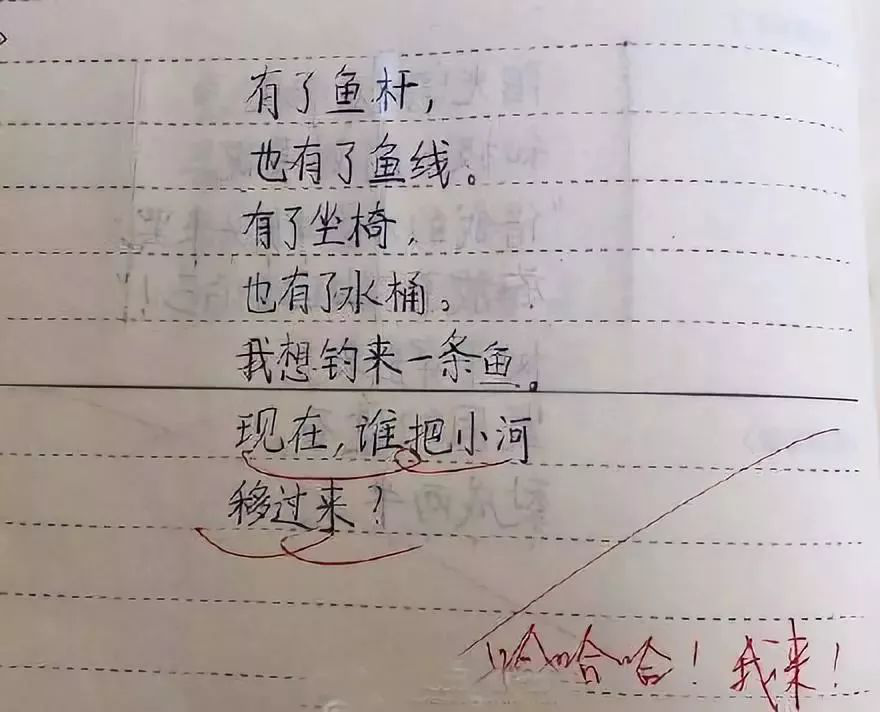 有了鱼杆，
也有了鱼线。
有了坐椅，
也有了水桶。
我想钓来一条鱼。
现在，谁把小河
移过来？
哈哈哈！我来！